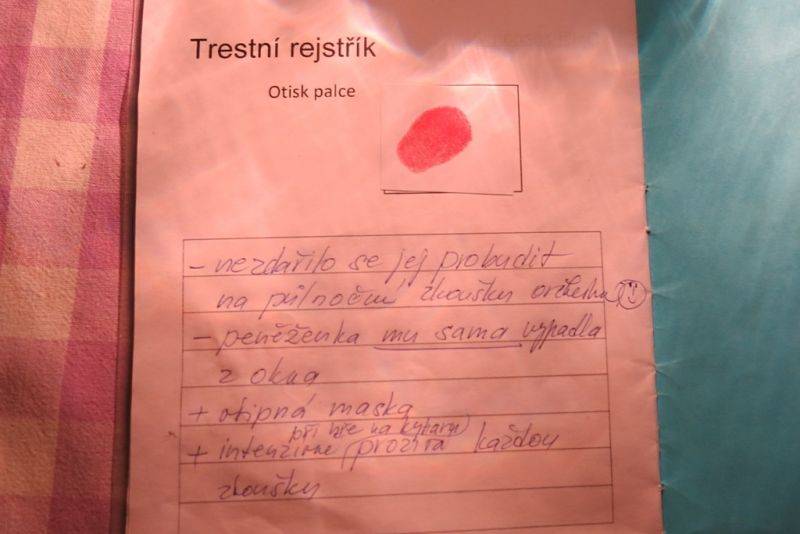 Trestní rejstřík
Otisk palce
- nezdařilo se jej probudit
na půlnoční zkoušku orchestru
- peněženka mu sama vypadla
z okna
+ vtipná maska
při hře na kytaru
+ intenzivně prožívá každou
zkoušku